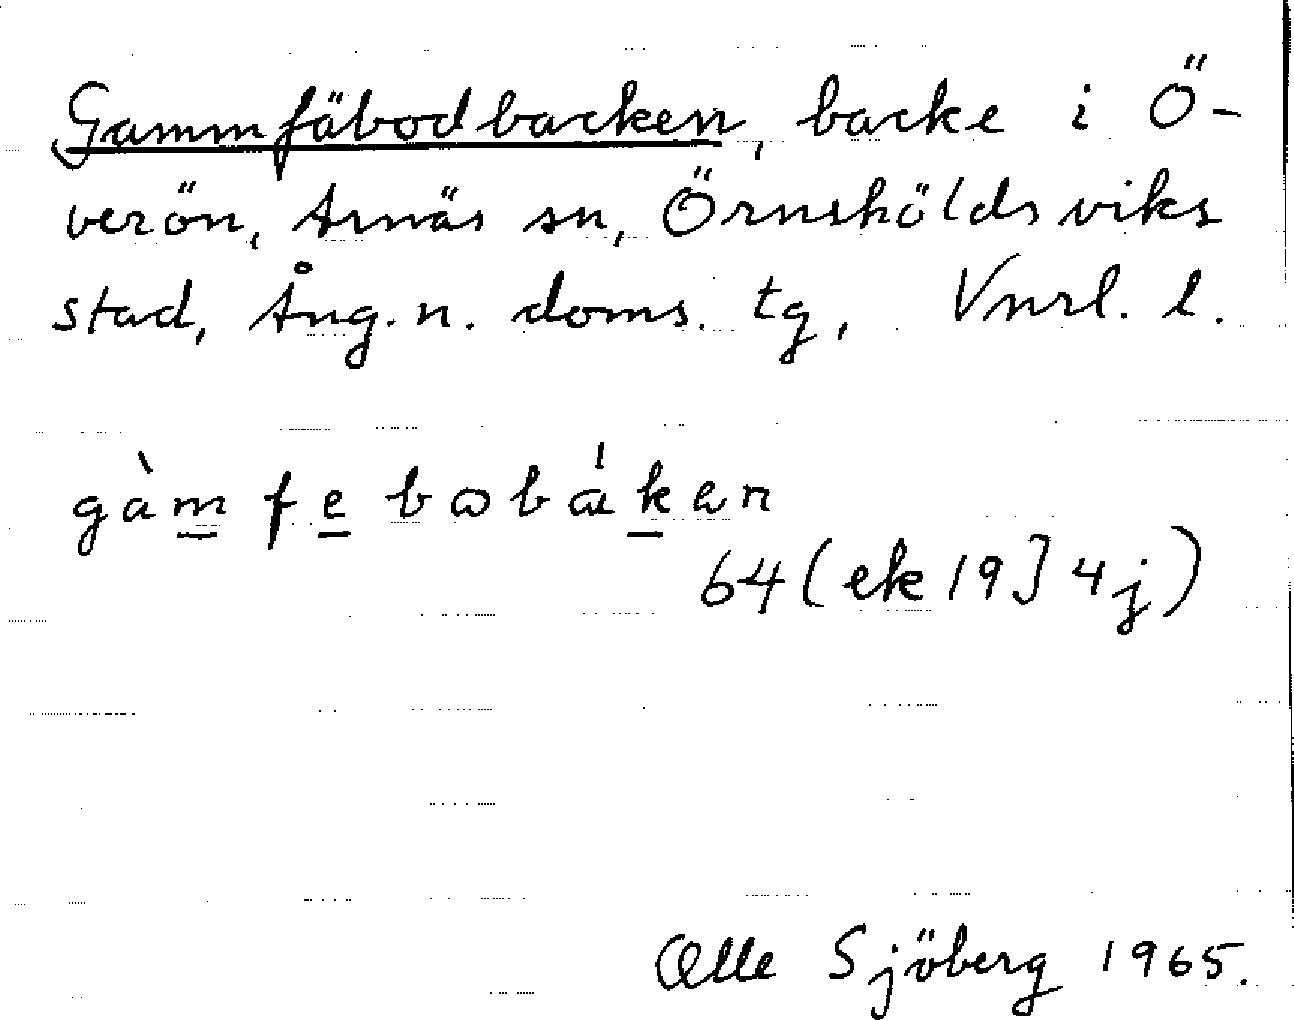 Gammfäbodbacken, backe i Ö-
verön, Arnäs sn, Örnsköldsviks
stad, Ång. n. doms. tg, Vnrl. l.
gàm̲ fe̲bωbák̲en
64 (ek 19J 4j)
Olle Sjöberg 1965.